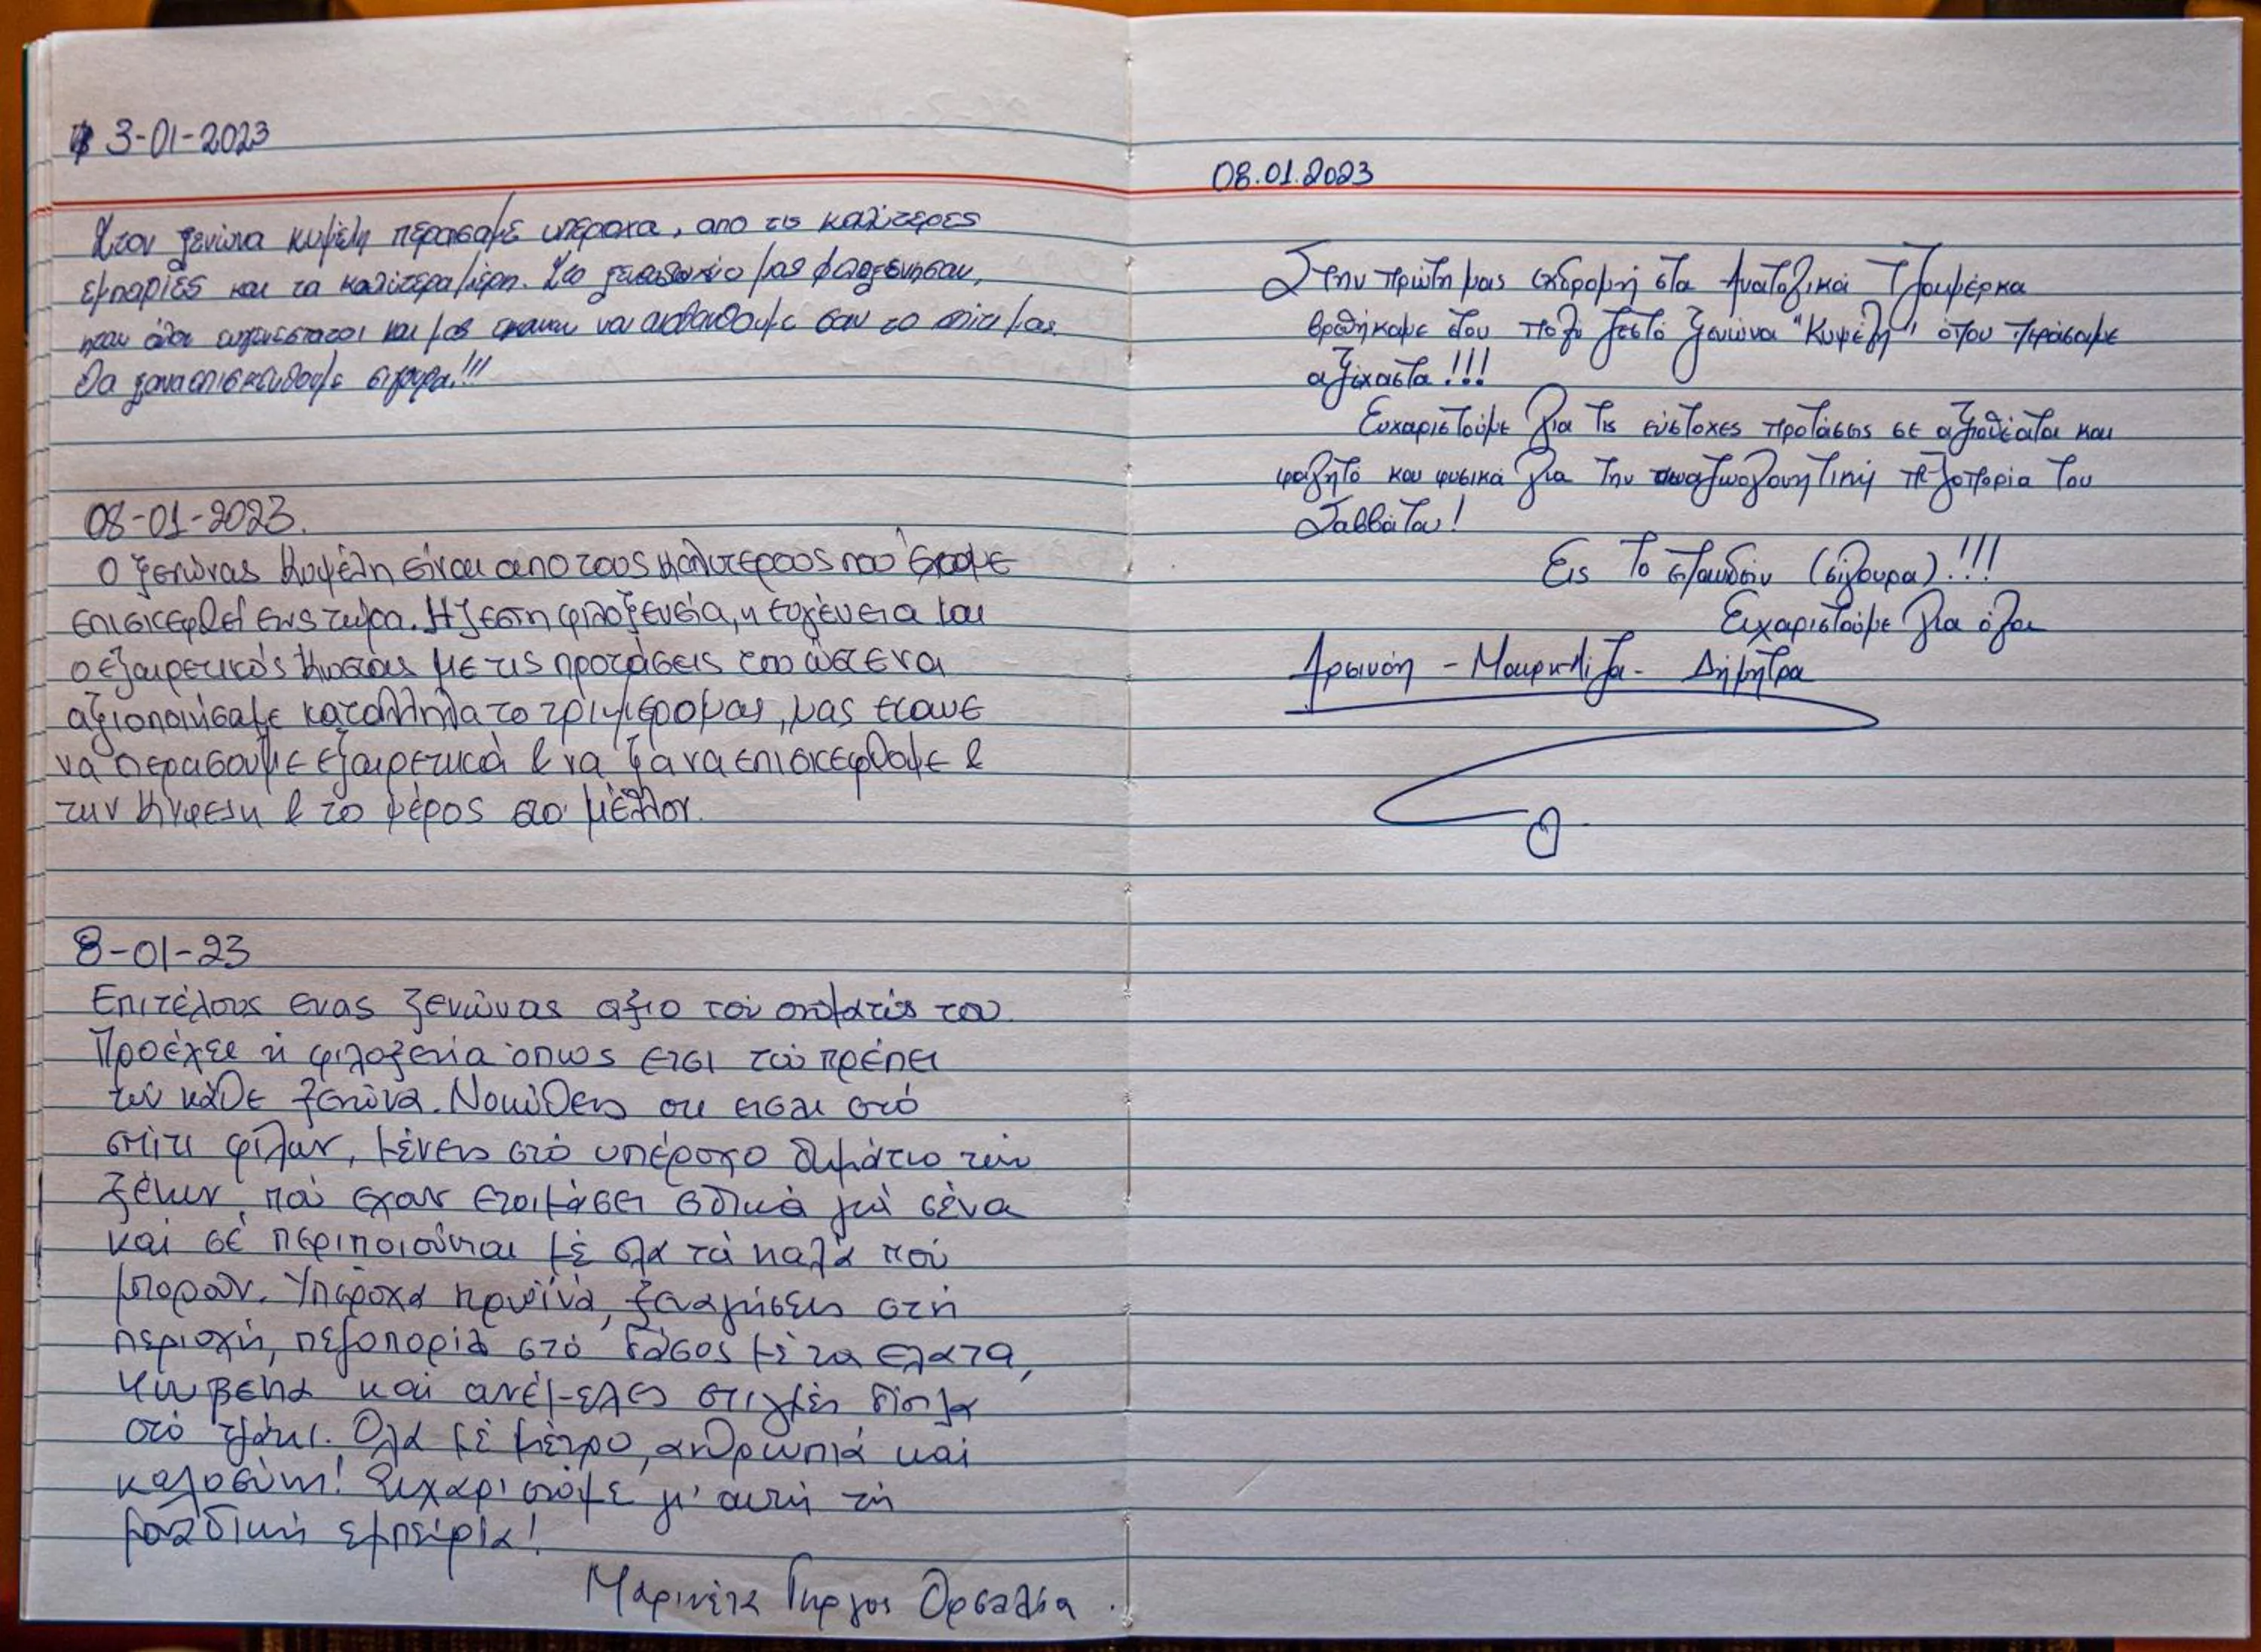 3-01-2023
Στον ξενώνα κυψέλη περάσαμε υπέροχα, απο τις καλύτερες
εμπορίες και τα καλύτερα μέρη. Στο ξενοδοχείο μας φιλοξένησαν,
ηταν όλοι ευγενέστατοι και μας εκαναν να αισθανθουμε σαν το σπίτι μας.
Θα ξαναεπισκευθουμε σιγουρα!!!
08-01-2023.
Ο ξενώνας Κυψέλη είναι απο τους καλυτερους που έχουμε
επισκεφθεί εως τώρα. Η ζεστη φιλοξενεία, η ευγένεια και
ο εξαιρετικός Κωστας με τις προτάσεις του ώστε να
αξιοποιήσαμε κατάλληλα το τριήμερο μας, μας εκανε
να περασουμε εξαιρετικά & να ξαναεπισκεφθουμε &
την Κυψελη & το μέρος στο μέλλον.
8-01-23
Επιτέλους ενας ξενώνας αξιο τού ονόματός του.
Προέχει ή φιλοξενία όπως ετσι τού πρέπει
τού κάθε ξενώνα. Νοιώθεις οτι εισαι στό
σπίτι φίλων, μένεις στό υπέροχο δωμάτιο τών
ξένων, πού εχουν ετοιμάσει ειδικά γιά σένα
καί σέ περιποιούνται μέ ολα τά καλά πού
μπορούν. Υπέροχα πρωϊνά, ξεναγήσεις στή
περιοχή, πεζοπορία στό δάσος μέ τα ελατα,
καί ανέμελες στιγμές δίπλα
στό τζάκι. Ολα μέ μέτρο, ανθρωπιά καί
καλοσύνη! Ευχαριστούμε γι' αυτή τή
μοναδική εμπειρία!
Μαρινέτα Γιώργος Ορσαλία.
08.01.2023
Στην πρώτη μας εκδρομή στα Ανατολικά Τζουμέρκα
βρεθήκαμε στον πολύ ζεστό ξενώνα "Κυψέλη", όπου περάσαμε
αξέχαστα!!!
Ευχαριστούμε για τις εύστοχες προτάσεις σε αξιοθέατα και
φαγητό και φυσικά για την αναζωογονητική πεζοπορία του
Σαββάτου!
Εις το επανιδείν (σίγουρα)!!!
Ευχαριστούμε για όλα
Αρσινόη - Μαιρη-Λιζα - Δήμητρα